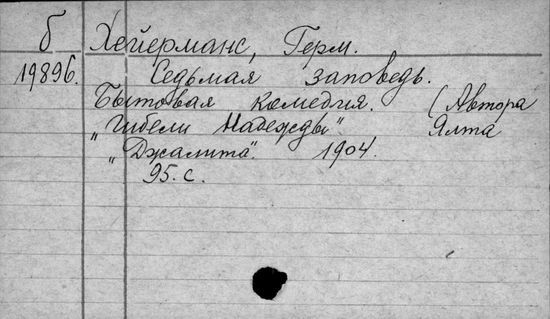 б Хейерманс, Герм.
19896. Седьмая заповедь.
Бытовая комедия. (Автора
"Гибели Надежды". Ялта
"Джалита". 1904.
95. с.